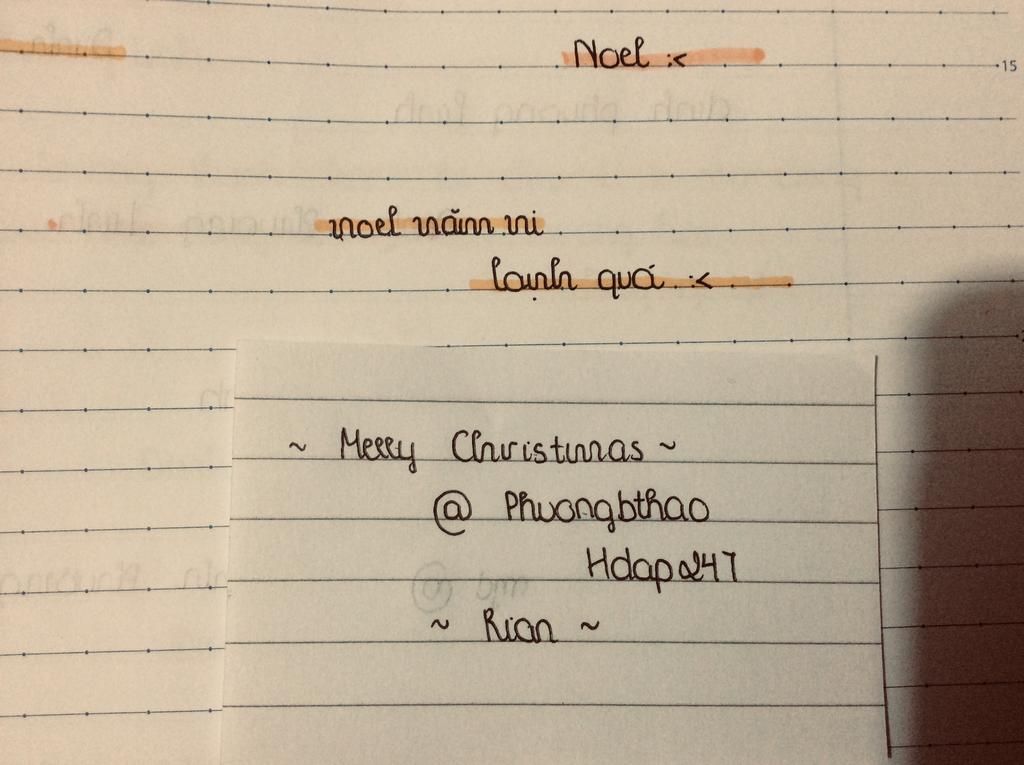 Noel :<
15
noel năm ni
lạnh quá :<
~ Merry Christmas ~
@ Phuongbthao
Hdap247
~ Rian ~